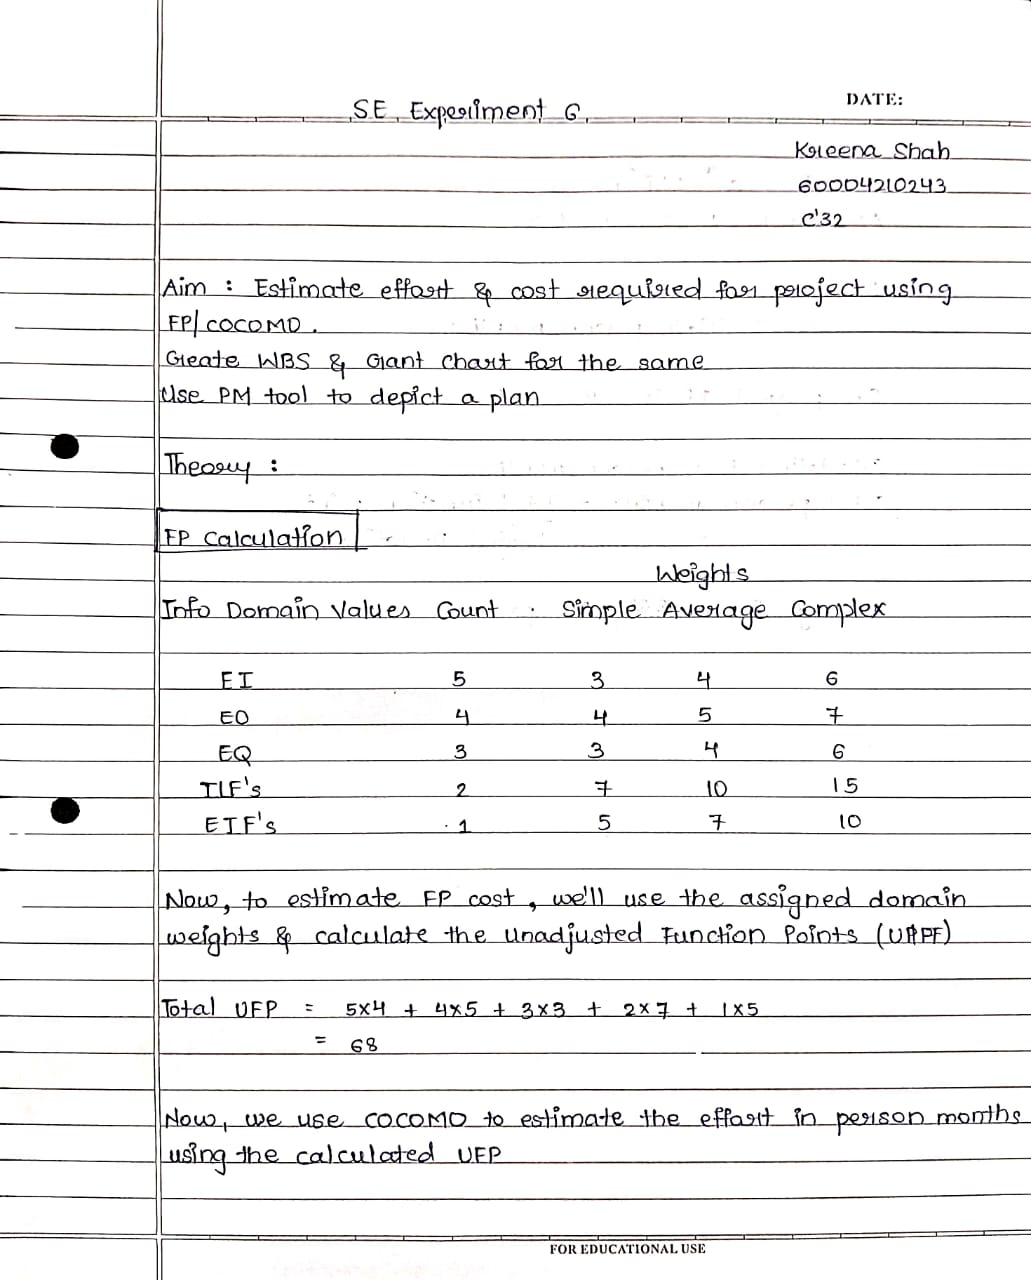 SE Experiment 6
DATE:
Kreena Shah
60004210243
C'32
Aim : Estimate effort & cost required for project using
FP/COCOMO.
Create WBS & Gant chart for the same
Use PM tool to depict a plan
Theory :
FP Calculation
Weights
Info Domain Values Count Simple Average Complex
EI 5 3 4 6
EO 4 4 5 7
EQ 3 3 4 6
ILF's 2 7 10 15
EIF's 1 5 7 10
Now, to estimate FP cost, we'll use the assigned domain
weights & calculate the Unadjusted Function Points (UPF)
Total UFP = 5x4 + 4x5 + 3x3 + 2x7 + 1x5
= 68
Now, we use COCOMO to estimate the effort in person months
using the calculated UFP
FOR EDUCATIONAL USE